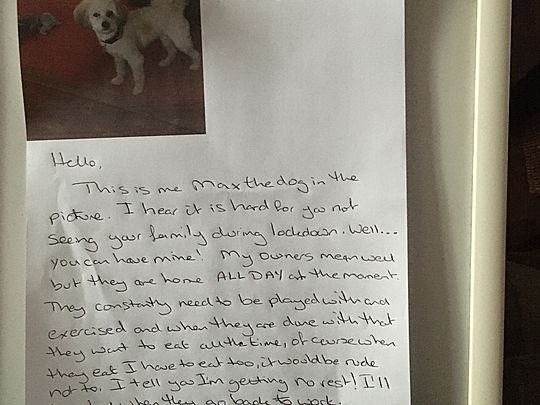 Hello,
This is me Max the dog in the
picture. I hear it is hard for you not
seeing your family during lockdown. Well...
you can have mine! My owners mean well
but they are home ALL DAY at the moment.
They constantly need to be played with and
exercised and when they are done with that
they want to eat all the time, of course when
they eat I have to eat too, it would be rude
not to. I tell you I'm getting no rest! I'll
when they go back to work.